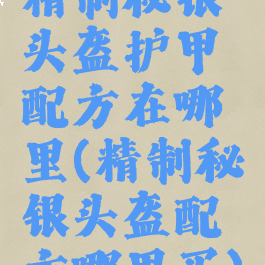 精制秘银
头盔护甲
配方在哪
里(精制秘
银头盔配
方哪里买)